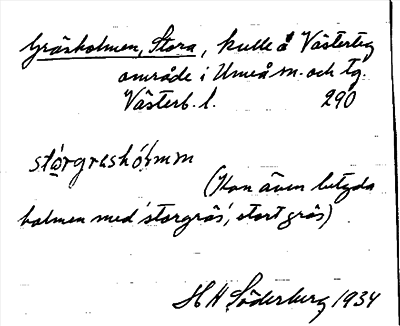 Gräsholmen, Stora, kulle å Västerteg
område i Umeå sn. och tg.
Västerb. l. 290
stórgreshólmm
(Kan även betyda
holmen med 'storgräs', stort gräs)
H H Söderberg 1934